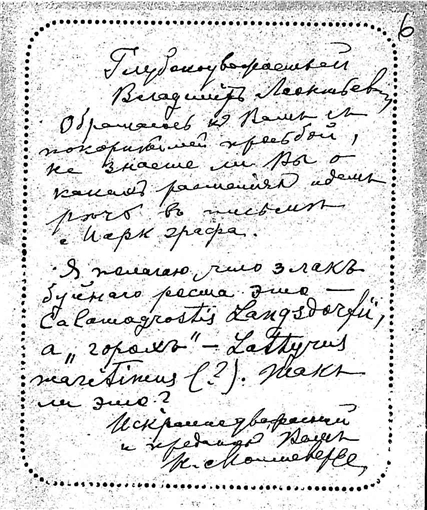 6
Глубокоуважаемый
Владимiръ Леонтьевич,
Обращаюсь къ Вамъ съ
покорнѣйшей просьбой,
не знаете ли Вы о
какихъ растенiяхъ идетъ
рѣчь въ письмѣ
графа.
Я полагаю, что злакъ
буйнаго роста это —
Calamagrostis Langsdorfii,
а „горохъ" — Lathyrus
maretimus (?). Такъ
ли это?
Искренноуважающiй
и преданный Вамъ